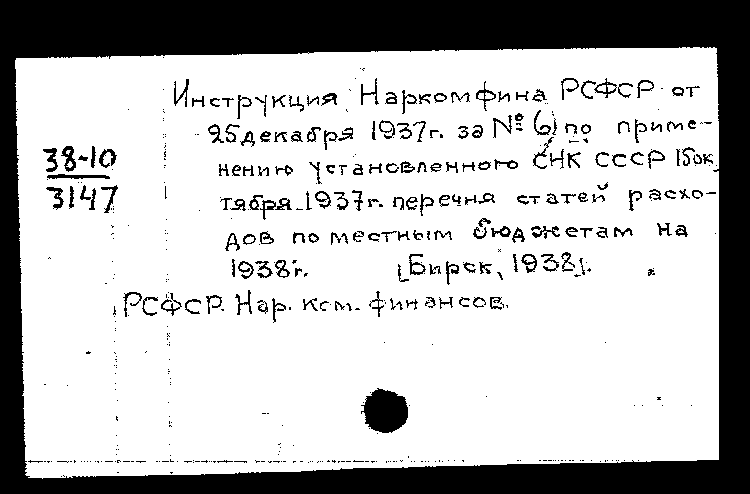 Инструкция Наркомфина РСФСР от
25 декабря 1937 г. за № (6) по приме-
38-10
нению установленного СНК СССР 15 ок
3147
тября 1937 г. перечня статей расхо-
дов по местным бюджетам на
1938 г. [Бирск, 1938].
РСФСР. Нар. ком. финансов.